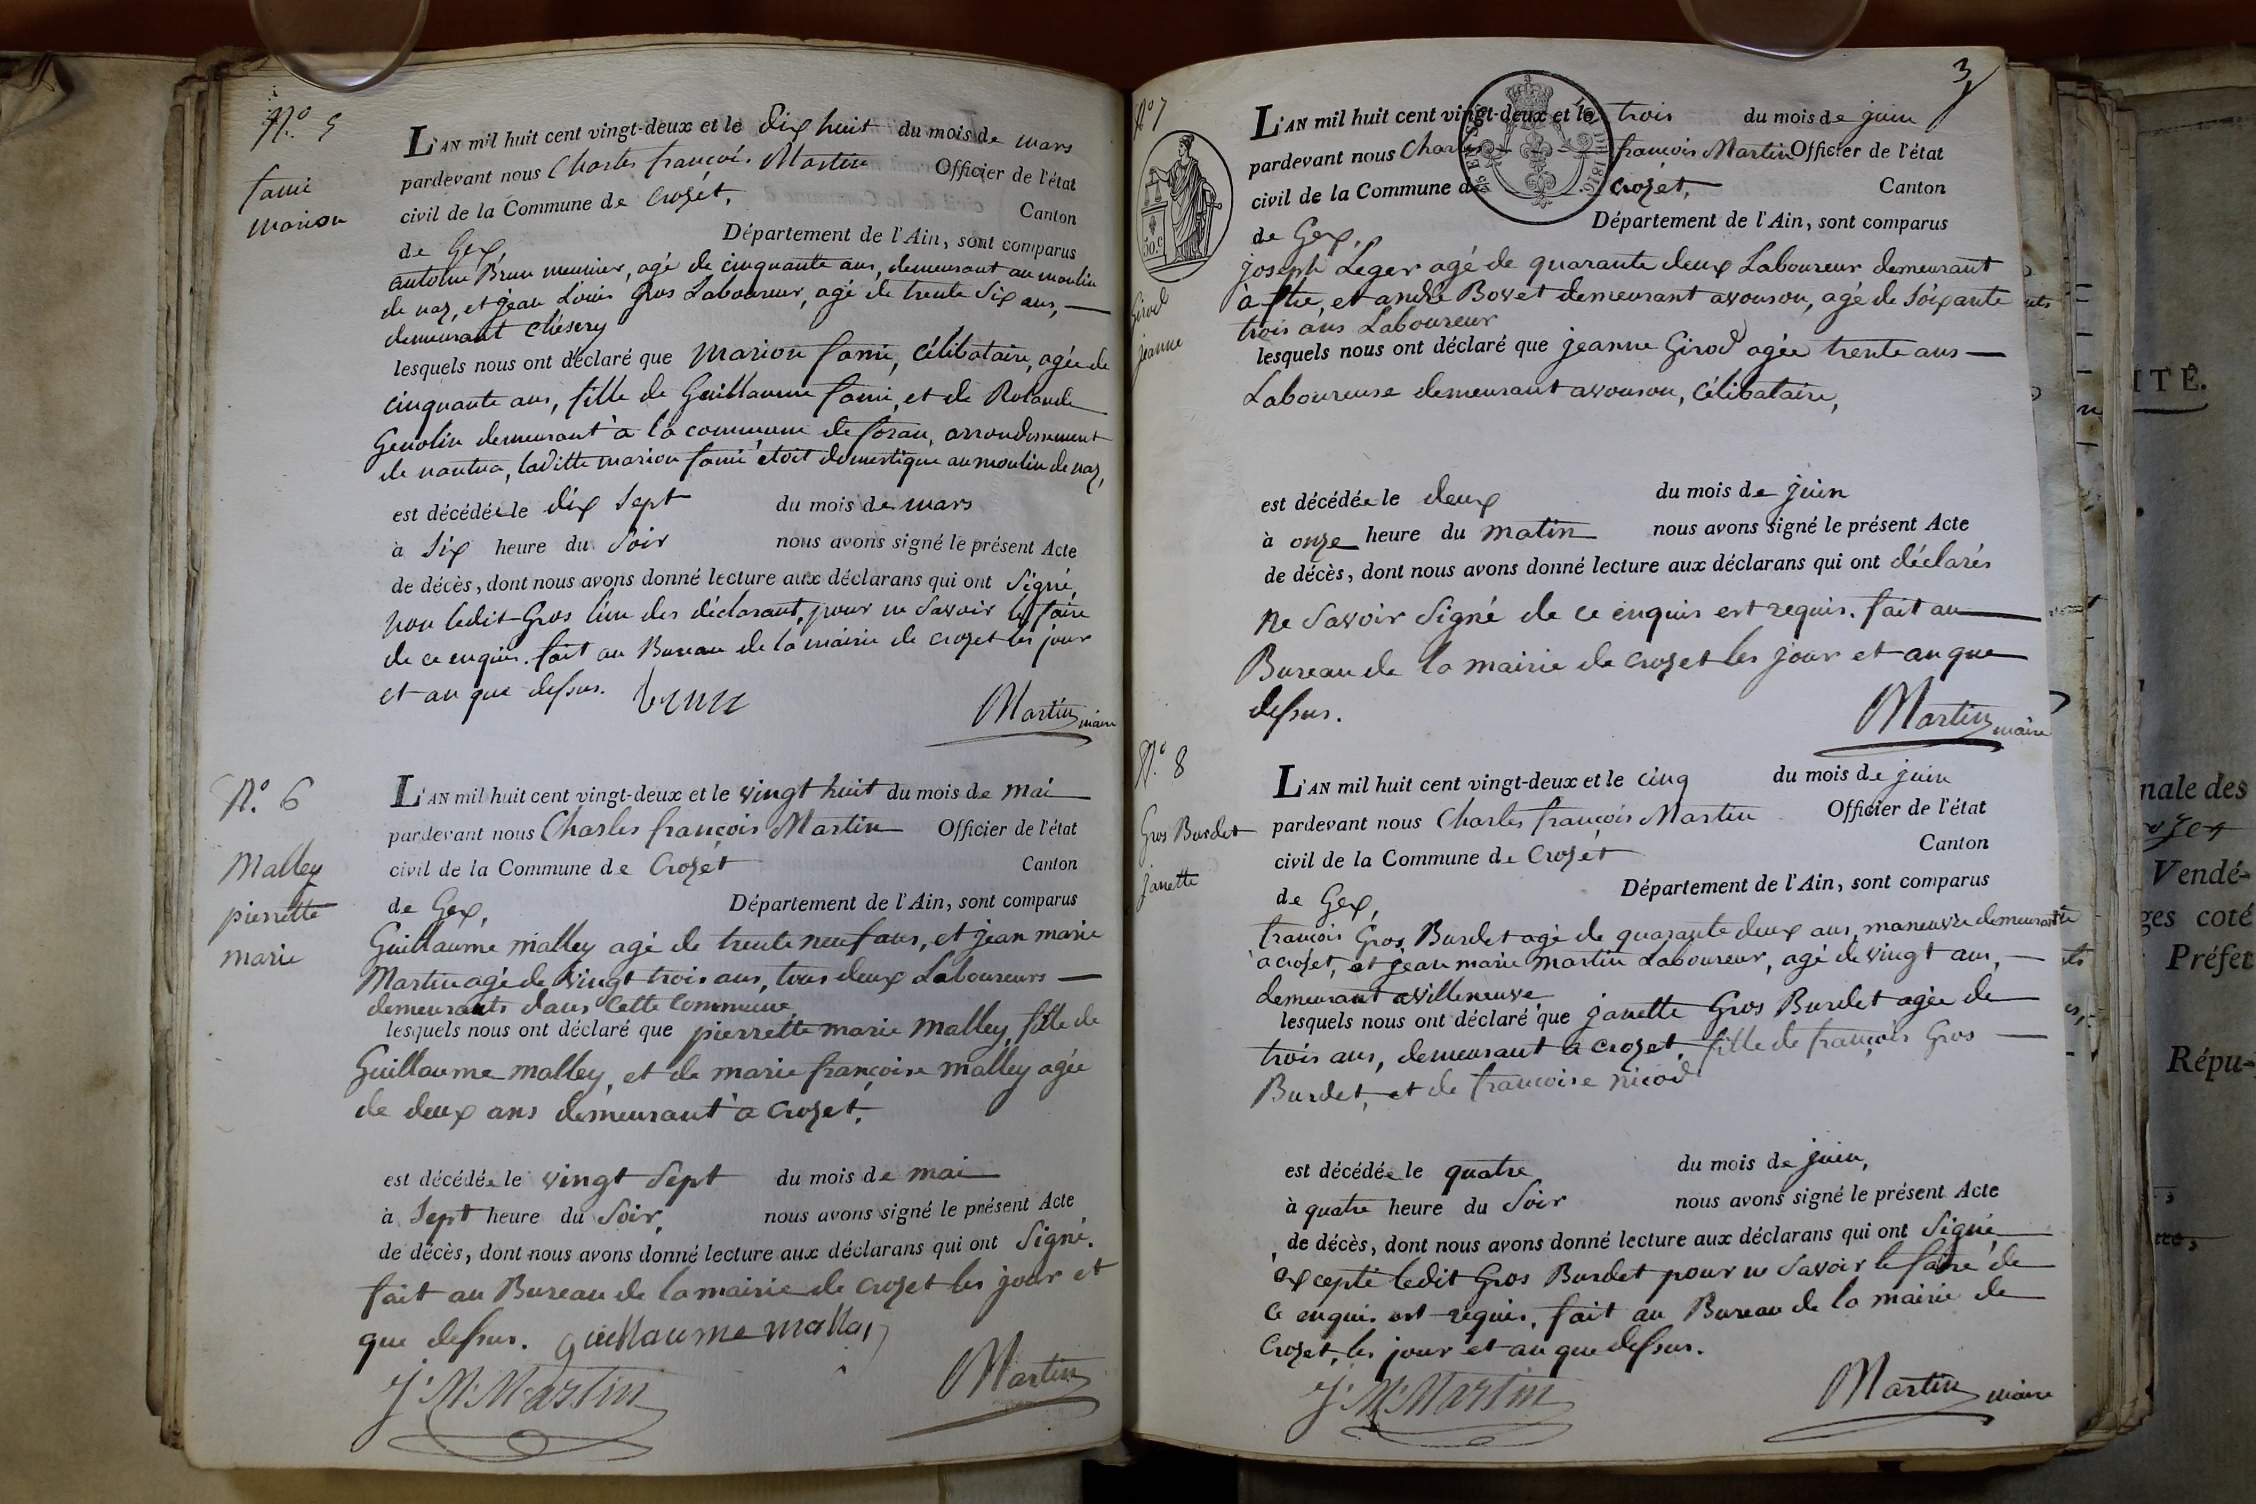 N.º 5
famé
marion
L'AN mil huit cent vingt-deux et le dix huit du mois de mars
pardevant nous Charles françois Martin Officier de l'état
civil de la Commune de Crozet, Canton
de Gex, Département de l'Ain, sont comparus
antoine Brun meunier, agé de cinquante ans, demeurant au moulin
de naz, et jean Louis Gros Laboureur, agé de trente six ans,
demeurant chésery
lesquels nous ont déclaré que Marion famé, célibataire, agée de
cinquante ans, fille de Guillaume famé, et de Rolande
Genolin demeurant à la commune de foran, arrondissement
de nantua, laditte marion famé étoit domestique au moulin de naz,
est décédée le dix sept du mois de mars
à six heure du soir nous avons signé le présent Acte
de décès, dont nous avons donné lecture aux déclarans qui ont signé,
non ledit Gros l'un des déclarant, pour ne savoir le faire
de ce enquis. fait au Bureau de la mairie de crozet les jour
et an que dessus. brun Martin maire
N.º 6
Malley
pierrette
marie
L'AN mil huit cent vingt-deux et le vingt huit du mois de mai
pardevant nous Charles françois Martin Officier de l'état
civil de la Commune de Crozet Canton
de Gex, Département de l'Ain, sont comparus
Guillaume malley agé de trente neuf ans, et jean marie
Martin agé de vingt trois ans, tous deux Laboureurs
demeurants dans cette commune,
lesquels nous ont déclaré que pierrette marie Malley, fille de
Guillaume malley, et de marie françoise malley agée
de deux ans demeurant a crozet,
est décédée le vingt sept du mois de mai
à sept heure du soir, nous avons signé le présent Acte
de décès, dont nous avons donné lecture aux déclarans qui ont signé.
fait au Bureau de la mairie de crozet les jour et
que dessus. guillaume mallay
J. M. Martin Martin
3
N.º 7
50.c
Girod
jeanne
L'AN mil huit cent vingt-deux et le trois du mois de juin
pardevant nous Charles françois Martin Officier de l'état
civil de la Commune de crozet, Canton
de Gex, Département de l'Ain, sont comparus
joseph Leger agé de quarante deux Laboureur demeurant
à flie, et andré Bovet demeurant avouson, agé de soixante
trois ans Laboureur
lesquels nous ont déclaré que jeanne Girod agée trente ans
Laboureuse demeurant avouson, célibataire,
est décédée le deux du mois de juin
à onze heure du matin nous avons signé le présent Acte
de décès, dont nous avons donné lecture aux déclarans qui ont déclarés
ne savoir signé de ce enquis est requis. fait au
Bureau de la mairie de crozet les jour et an que
dessus. Martin maire
N.º 8
Gros Burdet
janette
L'AN mil huit cent vingt-deux et le cinq du mois de juin
pardevant nous Charles françois Martin Officier de l'état
civil de la Commune de Crozet Canton
de Gex, Département de l'Ain, sont comparus
francois Gros Burdet agé de quarante deux ans, maneuvre demeurant
à crozet, et jean marie martin Laboureur, agé de vingt ans,
demeurant avilleneuve
lesquels nous ont déclaré que janette Gros Burdet agée de
trois ans, demeurant à crozet, fille de françois Gros
Burdet, et de francoise nicod
est décédée le quatre du mois de juin,
à quatre heure du soir nous avons signé le présent Acte
de décès, dont nous avons donné lecture aux déclarans qui ont signé,
excepté ledit Gros Burdet pour ne savoir le faire de
ce enquis est requis, fait au Bureau de la mairie de
Crozet, les jour et an que dessus.
J. M. Martin Martin maire
ITÉ.
nale des
Vendé-
ges coté
Préfet
Répu-